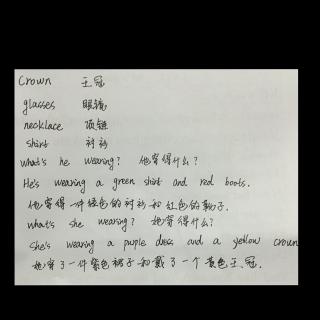 Crown 王冠
glasses 眼镜
necklace 项链
shirt 衬衫
what's he wearing? 他穿得什么?
He's wearing a green shirt and red boots.
他穿得一件绿色的衬衫和红色的靴子.
what's she wearing? 她穿得什么?
She's wearing a puple dress and a yellow crown
她穿了一件紫色裙子和戴了一个黄色王冠.